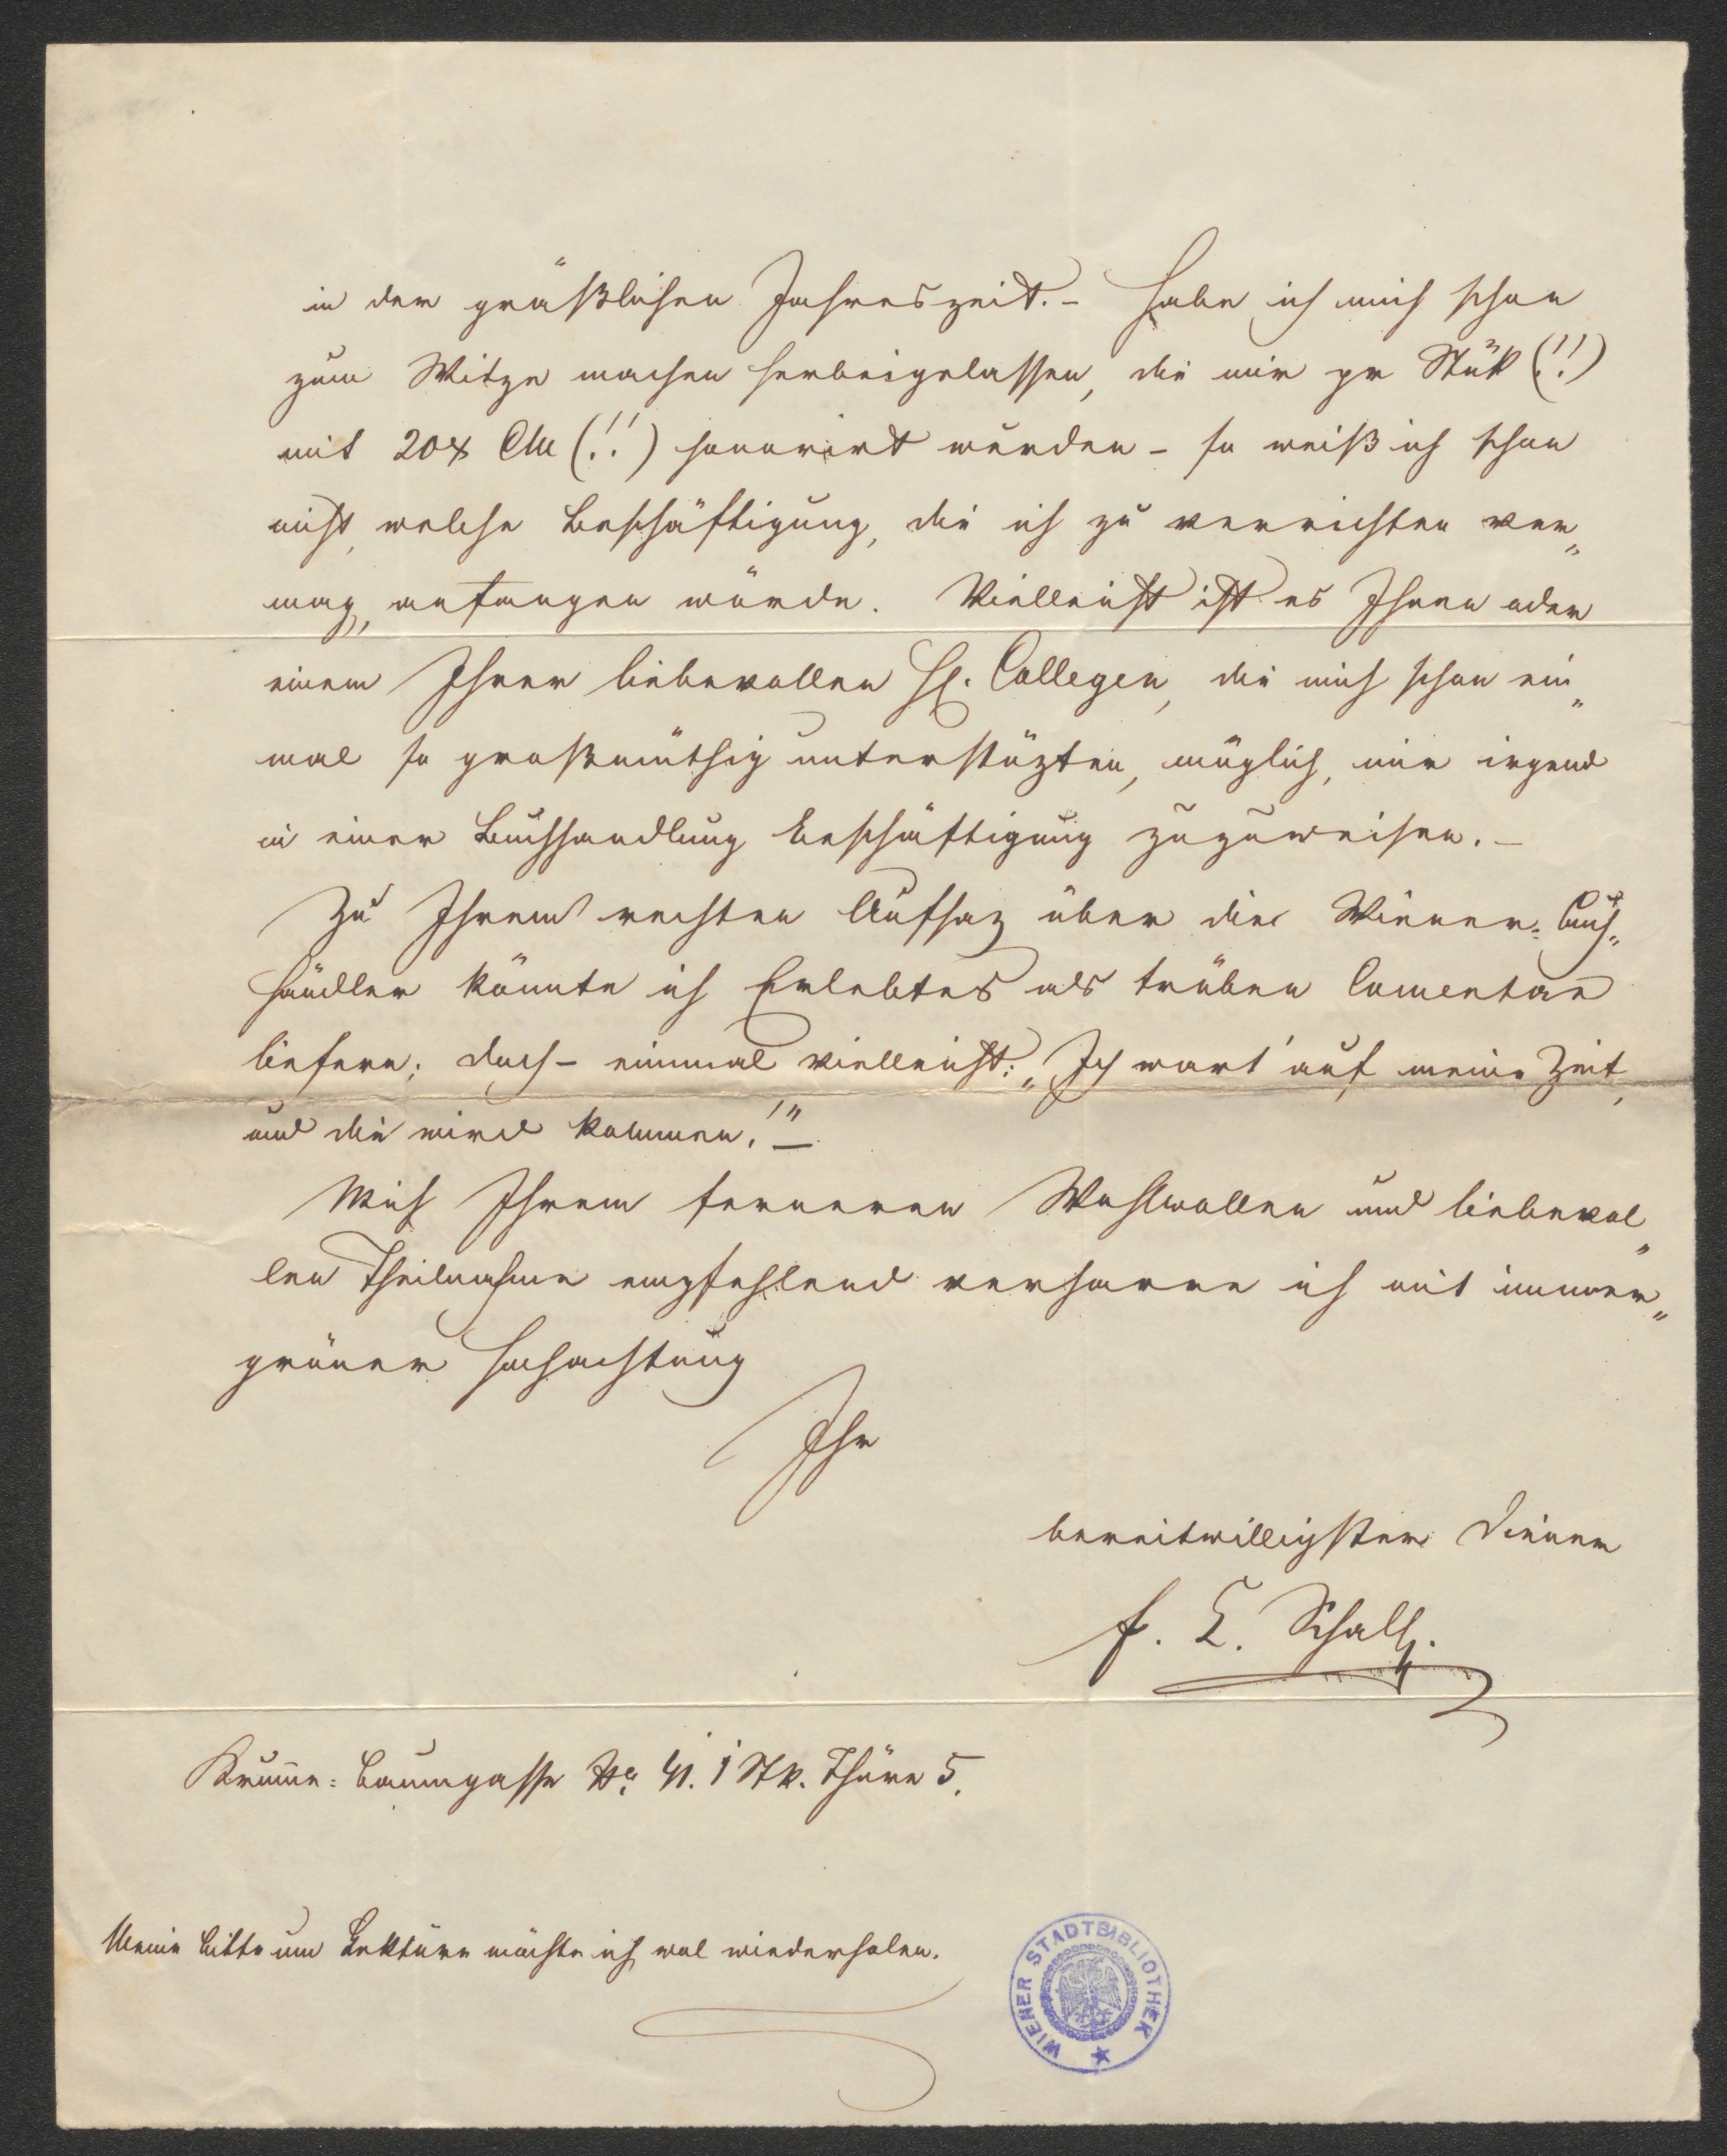 in der gräßlichen Jahreszeit. – Habe ich mich schon
zum Witze machen herbeigelassen, die mir pr Stük (!!)
mit 20x CM (!!) honorirt wurden – so weiß ich schon
nicht, welche Beschäftigung, die ich zu verrichten ver„
mag, anfangen würde. Vielleicht ist es Ihnen oder
einem Ihrer liebevollen H. Collegen, die mich schon ein„
mal so großmüthig unterstüzten, möglich, mir irgend
in einer Buchhandlung Beschäftigung zuzuweisen. –
Zu Ihrem rechten Aufsaz über die Wiener= Buch„
händler könnte ich Erlebtes als trüben Comentar
liefern; doch – einmal vielleicht: „Ich wart' auf meine Zeit,
und die wird kommen!" –
Mich Ihrem ferneren Wohlwollen und liebevol„
len Theilnahme empfehlend verharre ich mit immer„
grüner Hochachtung
Ihr
bereitwilligster Diener
F. E. Schall.
Krumme= Baumgasse No. 41. 1 Stk. Thüre 5.
Meine Bitte um Lektüre möchte ich wol wiederholen.
WIENER STADTBIBLIOTHEK